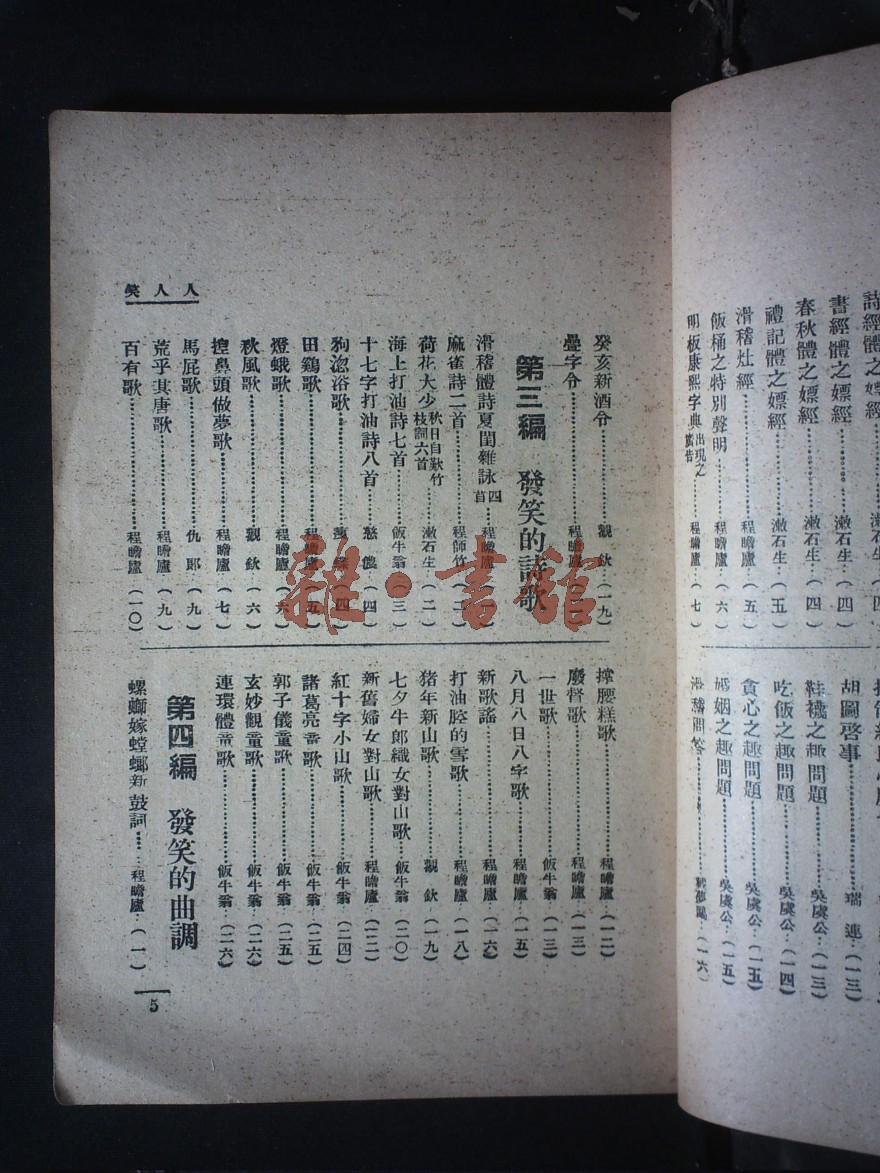 書經體之嫖經……漱石生…(四)
春秋體之嫖經……漱石生…(四)
禮記體之嫖經……漱石生…(五)
滑稽灶經……程瞻廬…(五)
飯桶之特別聲明……程瞻廬…(六)
明板康熙字典出現之廣告……程瞻廬…(七)
胡圖啓事……瑞連…(一三)
鞋襪之趣問題……吳虞公…(一三)
吃飯之趣問題……吳虞公…(一四)
貪心之趣問題……吳虞公…(一五)
婚姻之趣問題……吳虞公…(一五)
滑稽問答
人人笑
癸亥新酒令……觀欽…(一九)
疊字令……程瞻廬
第三編 發笑的詩歌
滑稽體詩夏閨雜詠四首……程瞻廬
麻雀詩二首……程師竹…(二)
荷花大少秋日自歎竹枝詞六首……漱石生…(二)
海上打油詩七首……飯牛翁…(三)
十七字打油詩八首……(四)
狗浴歌……(四)
田鷄歌……程瞻廬…(五)
燈蛾歌……程瞻廬…(六)
秋風歌……觀欽…(六)
揑鼻頭做夢歌……程瞻廬…(七)
馬屁歌……仇郎…(九)
荒乎其唐歌……程瞻廬…(九)
百有歌……程瞻廬(一〇)
撑腰糕歌……程瞻廬(一二)
廢督歌……程瞻廬(一三)
一世歌……飯牛翁(一三)
八月八日八字歌……程瞻廬(一五)
新歌謠……程瞻廬(一六)
打油腔的雪歌……程瞻廬(一八)
猪年新山歌……觀欽(一九)
七夕牛郎織女對山歌……飯牛翁(二〇)
新舊婦女對山歌……程瞻廬(二二)
紅十字小山歌……飯牛翁(二四)
諸葛亮童歌……飯牛翁(二五)
郭子儀童歌……飯牛翁(二五)
玄妙觀童歌……飯牛翁(二六)
連環體童歌……飯牛翁(二六)
第四編 發笑的曲調
螺螄嫁螳螂新鼓詞……程瞻廬…(一)
5
雜·書館